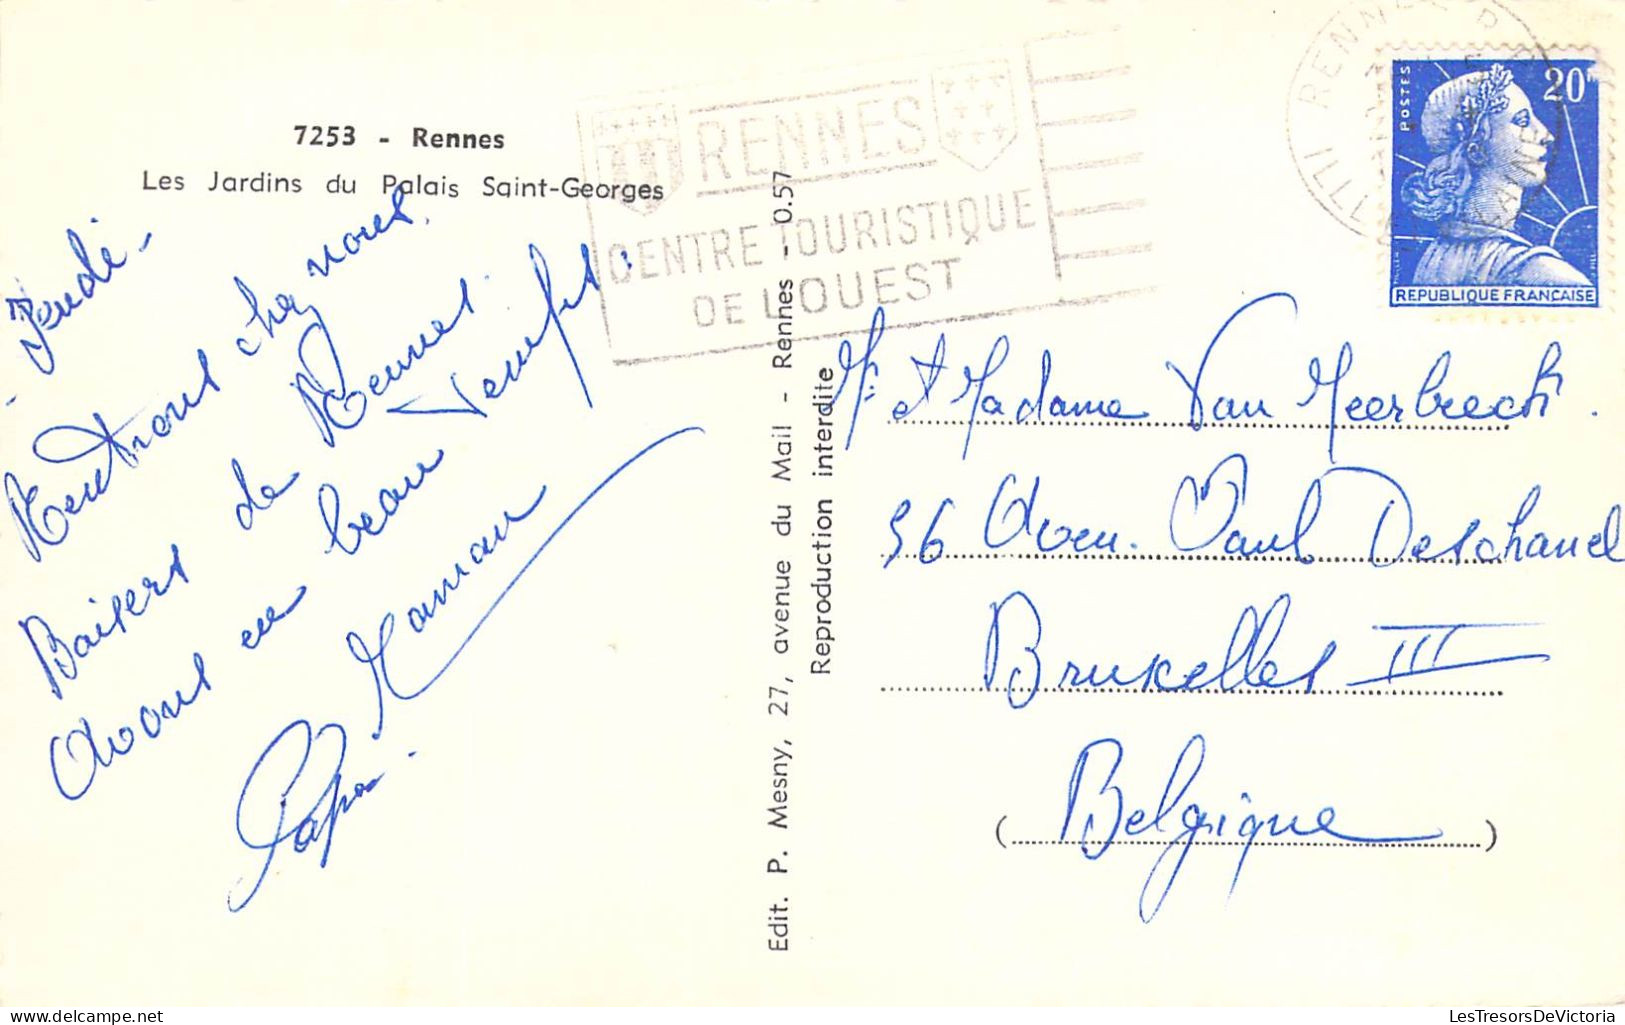 7253 - Rennes
Les Jardins du Palais Saint-Georges
Jeudi -
Rentrons chez nous.
Baisers de Rennes.
Avons eu beau temps.
Maman
Papa.
RENNES
CENTRE TOURISTIQUE
DE L'OUEST
Edit. P. Mesny, 27, avenue du Mail - Rennes - 0.57
Reproduction interdite
RENNES R.P.
ILLE
VILAINE
POSTES
20F
REPUBLIQUE FRANCAISE
Mr et Madame Van Meerbeeck.
56 Aven. Paul Deschanel
Bruxelles III
(Belgique)
delcampe.net
LesTresorsDeVictoria